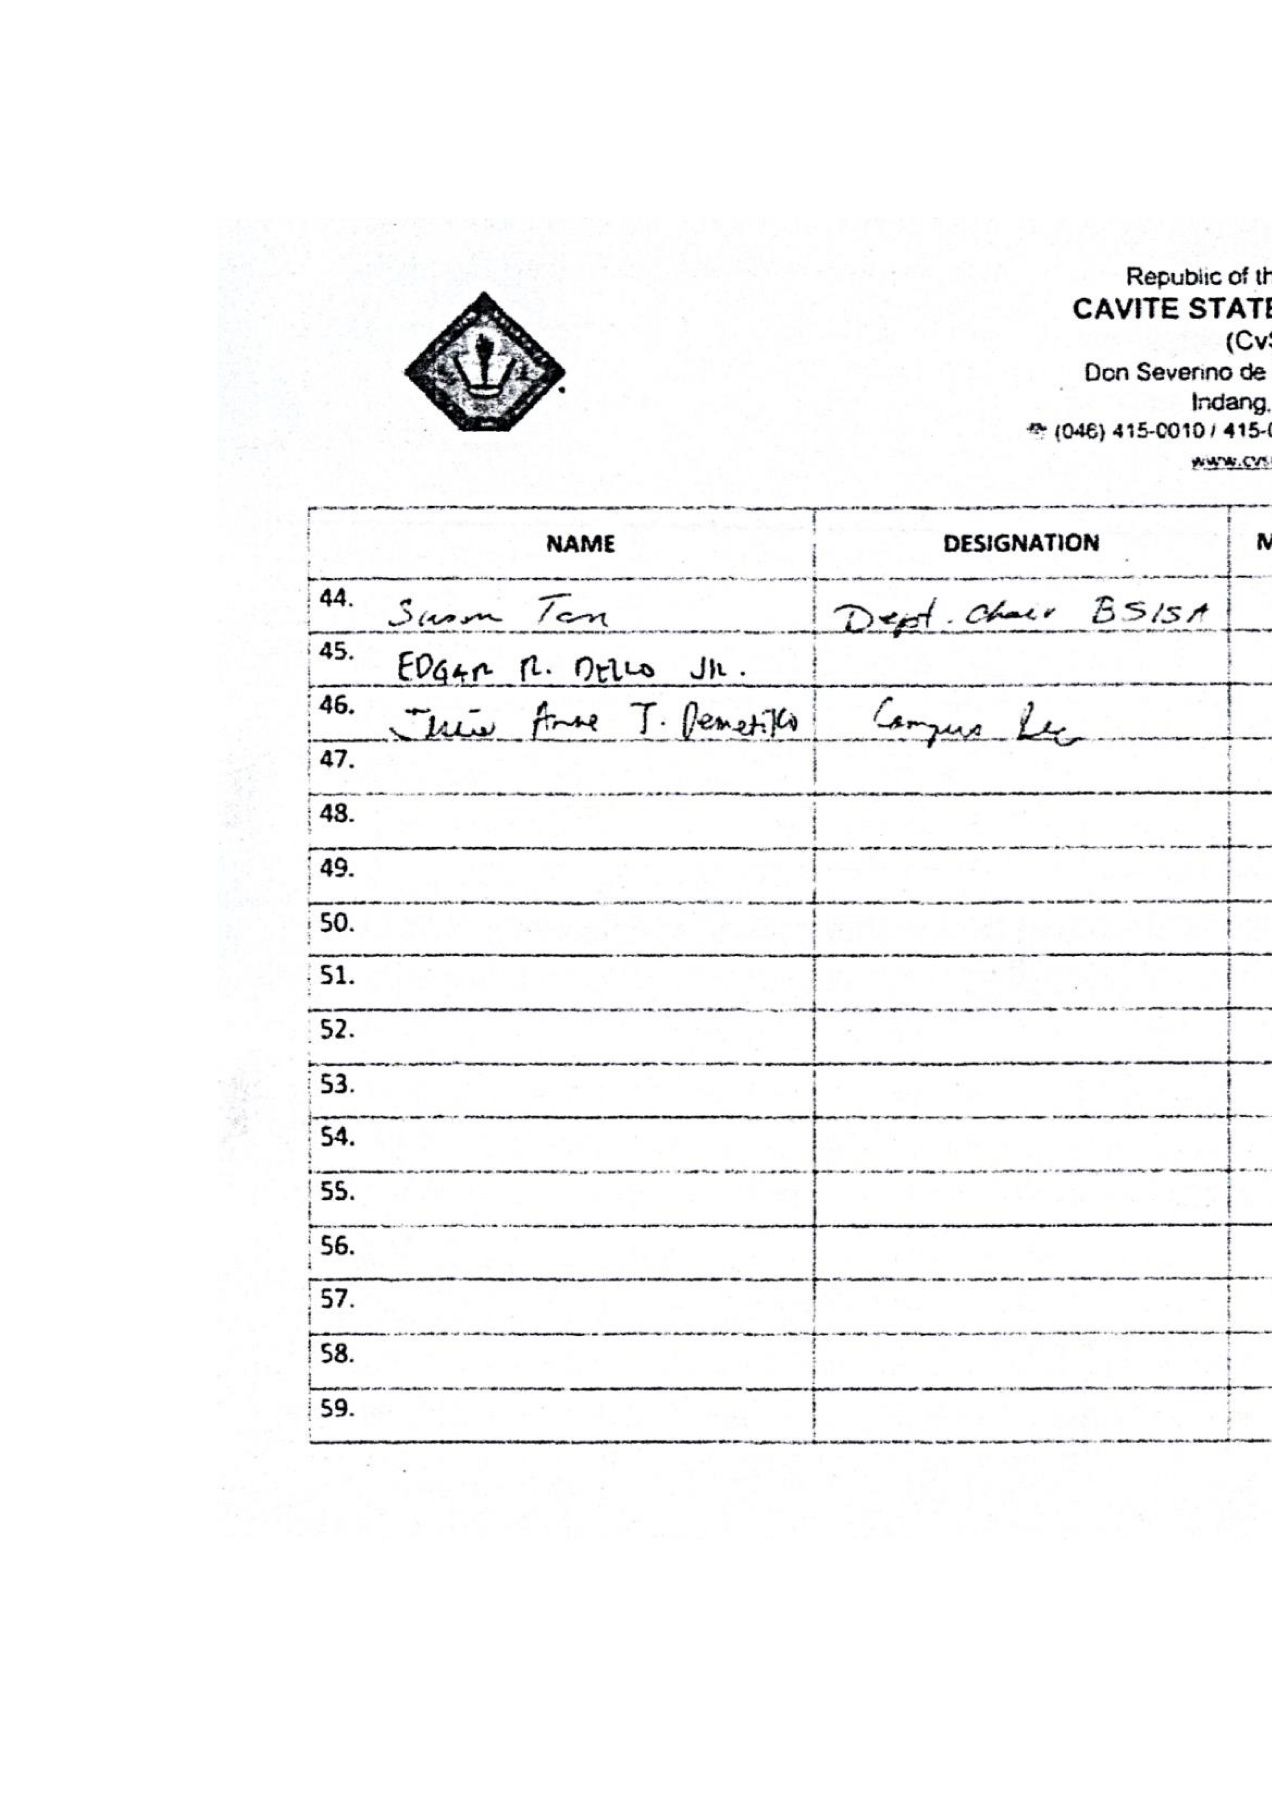 Republic of th
CAVITE STATE
(CvS
Don Severino de
Indang,
☎ (046) 415-0010 / 415-0
www.cvs
NAME DESIGNATION M
44. Susan Tan Dept. Chair BSISA
45. EDGAR R. DELLO JR.
46. Anne T. Campus
47.
48.
49.
50.
51.
52.
53.
54.
55.
56.
57.
58.
59.